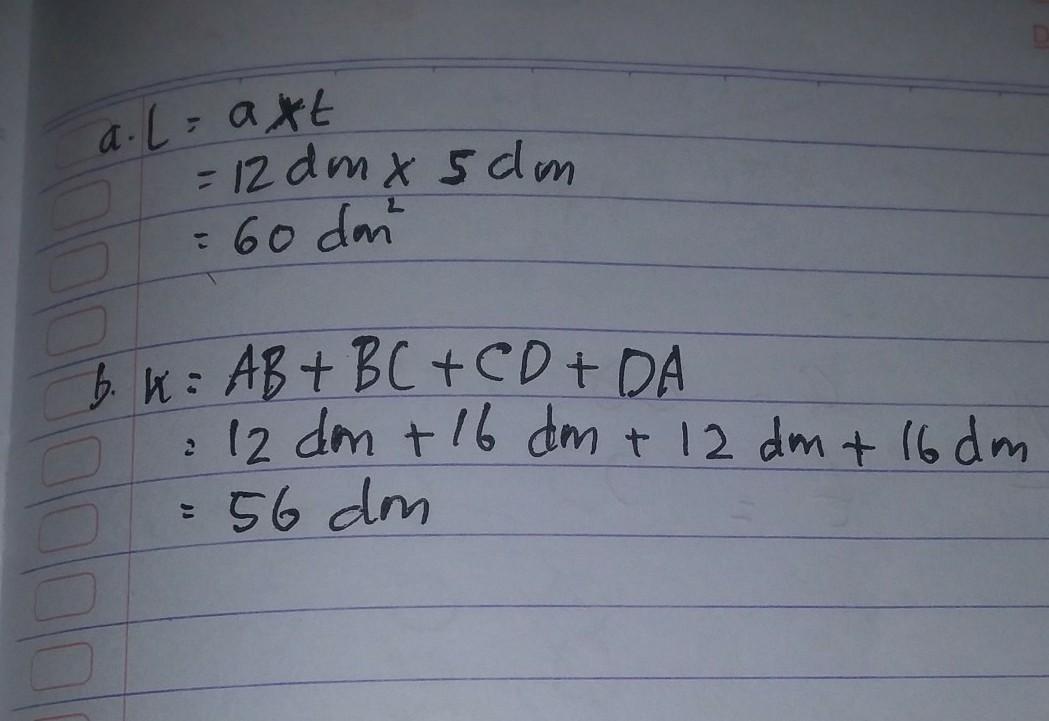 a. L = a x t
= 12 dm x 5 dm
= 60 dm²
b. K = AB + BC + CD + DA
= 12 dm + 16 dm + 12 dm + 16 dm
= 56 dm